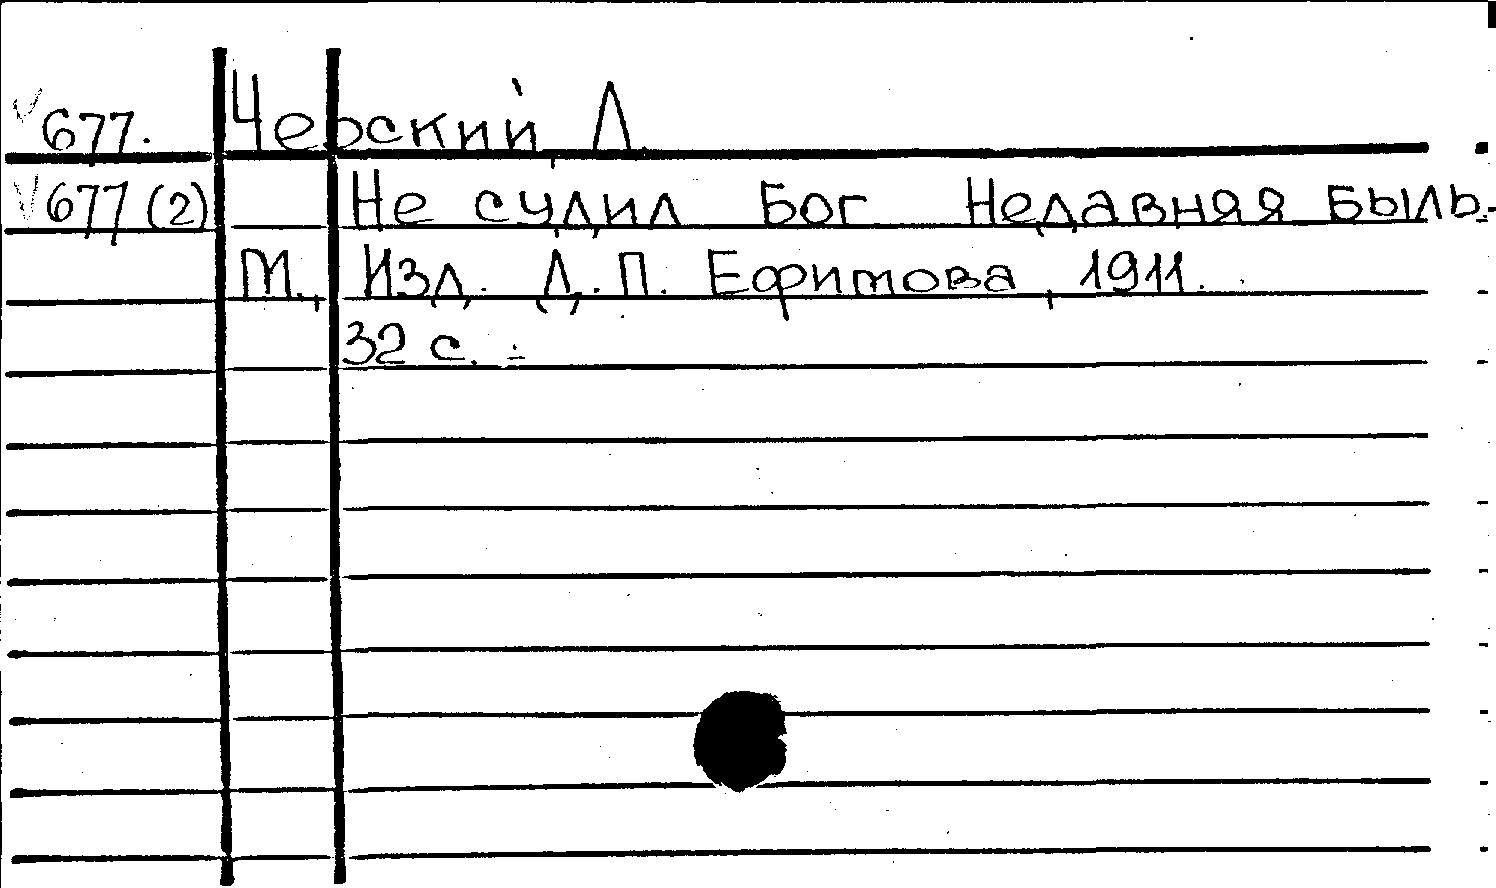 677. Черский, Л.
677 (2) Не судил Бог Недавняя быль.-
М., Изд. Д. П. Ефимова, 1911.
32 с. -